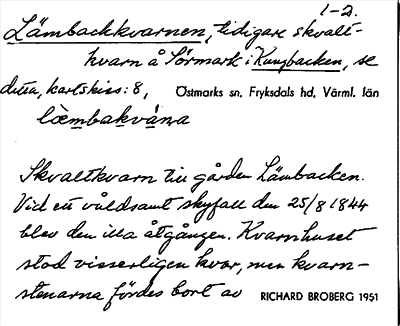 1-2.
Lämbackkvarnen, tidigare skvalt-
kvarn å Sörmark i Kungbacken, se
detta, kartskiss: 8, Östmarks sn, Fryksdals hd, Värml. län
lɛ̀mbakvána
Skvaltkvarn till gården Lämbacken.
Vid ett våldsamt skyfall den 25/8 1844
blev den illa åtgången. Kvarnhuset
stod visserligen kvar, men kvarn-
stenarna fördes bort av RICHARD BROBERG 1951